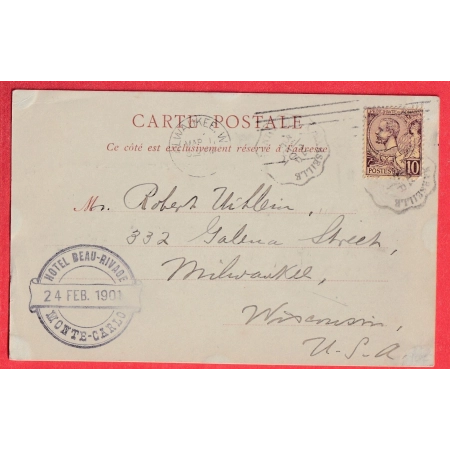 CARTE POSTALE
Ce côté est exclusivement réservé à l'adresse
POSTES 10
MARSEILLE
Mr. Robert Uihlein,
332 Galena Street,
Milwaukee,
Wisconsin,
U.S.A.
HOTEL BEAU-RIVAGE
24 FEB. 1901
MONTE-CARLO